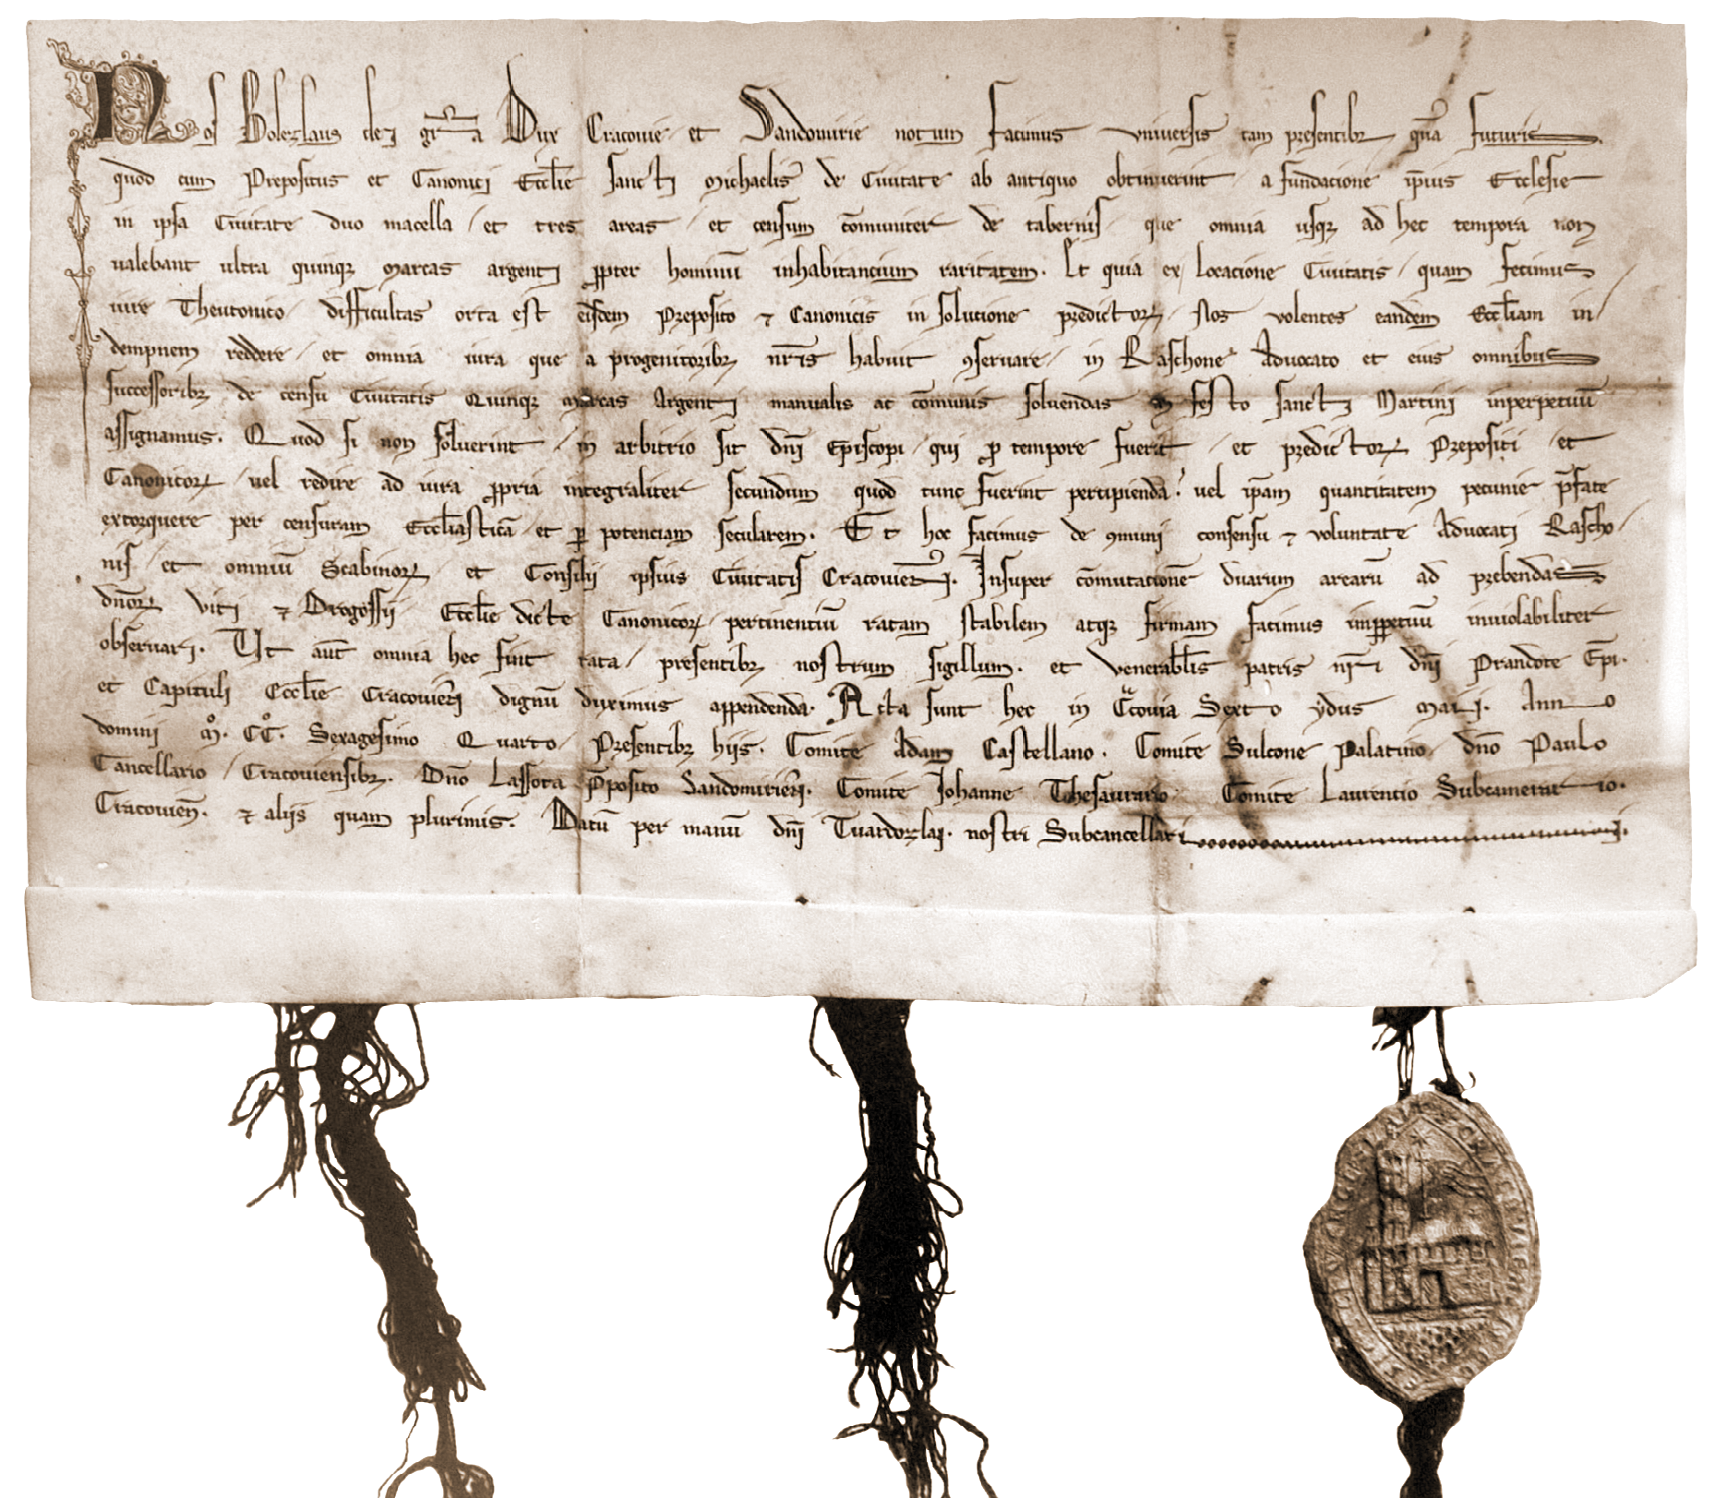 Nos Bolezlaus dei gr̄a Dux Cracouie et Sandomirie notum facimus vniuersis tam presentibꝫ quā futuris.
quod cum Prepositus et Canonici Eccl̄ie sancti Michaelis de Ciuitate ab antiquo obtinuerint a fundacione ip̄ius Ecclesie
in ipsa Ciuitate duo macella et tres areas et censum cōmuniter de tabernis que omnia usqꝫ ad hec tempora non
ualebant ultra quinqꝫ marcas argenti ꝓpter hominū inhabitancium raritatem. Et quia ex locacione Ciuitatis quam fecimus
iure Theutonico difficultas orta est eisdem Preposito ⁊ Canonicis in solucione predictoꝝ Nos volentes eandem Eccl̄iam in
dempnem reddere et omnia iura que a progenitoribꝫ nr̄is habuit ꝯseruare in Raschone Aduocato et eius omnibus
successoribꝫ de censu Ciuitatis Quinqꝫ marcas Argenti manualis ac cōmunis soluendas in festo sancti Martini inperpetuū
assignamus. Quod si non soluerint in arbitrio sit dn̄i Episcopi qui ꝓ tempore fuerit et predictoꝝ Prepositi et
Canonicoꝝ uel redire ad iura ꝓpria integraliter secundum quod tunc fuerint percipienda uel ip̄am quantitatem pecunie p̄fate
extorquere per censuram Eccl̄iasticā et ꝑ potenciam secularem. Et hoc facimus de ꝯmuni consensu ⁊ voluntate Aduocati Rascho
nis et omniū Scabinoꝝ et Consilii ipsius Ciuitatis Cracouien̄. Insuper cōmutacionē duarum arearū ad prebendas
dn̄oꝝ Viti ⁊ Drogossii Eccl̄ie dicte Canonicoꝝ pertinentiū ratam stabilem atqꝫ firmam facimus inꝑpetuū inuiolabiliter
obseruari. Ut aūt omnia hec sint rata presentibꝫ nostrum sigillum. et venerabl̄is patris nr̄i dn̄i Prandote Ep̄i.
et Capituli Eccl̄ie Cracouien̄ dignū duximus appendenda. Acta sunt hec in Cͣcouia Sexto ydus maii. Anno
domini M̊. CC̊. Sexagesimo Quarto. Presentibꝫ hiis. Comite Adam Castellano. Comite Sulcone Palatino dn̄o Paulo
Cancellario Cracouiensibꝫ. Dn̄o Lassota P̄posito Sandomirien̄. Comite Iohanne Thesaurario Comite Laurencio Subcamerario.
Cracouien̄. ⁊ aliis quam plurimis. Datū per manū dn̄i Tuardozlai. nostri Subcancellarii.